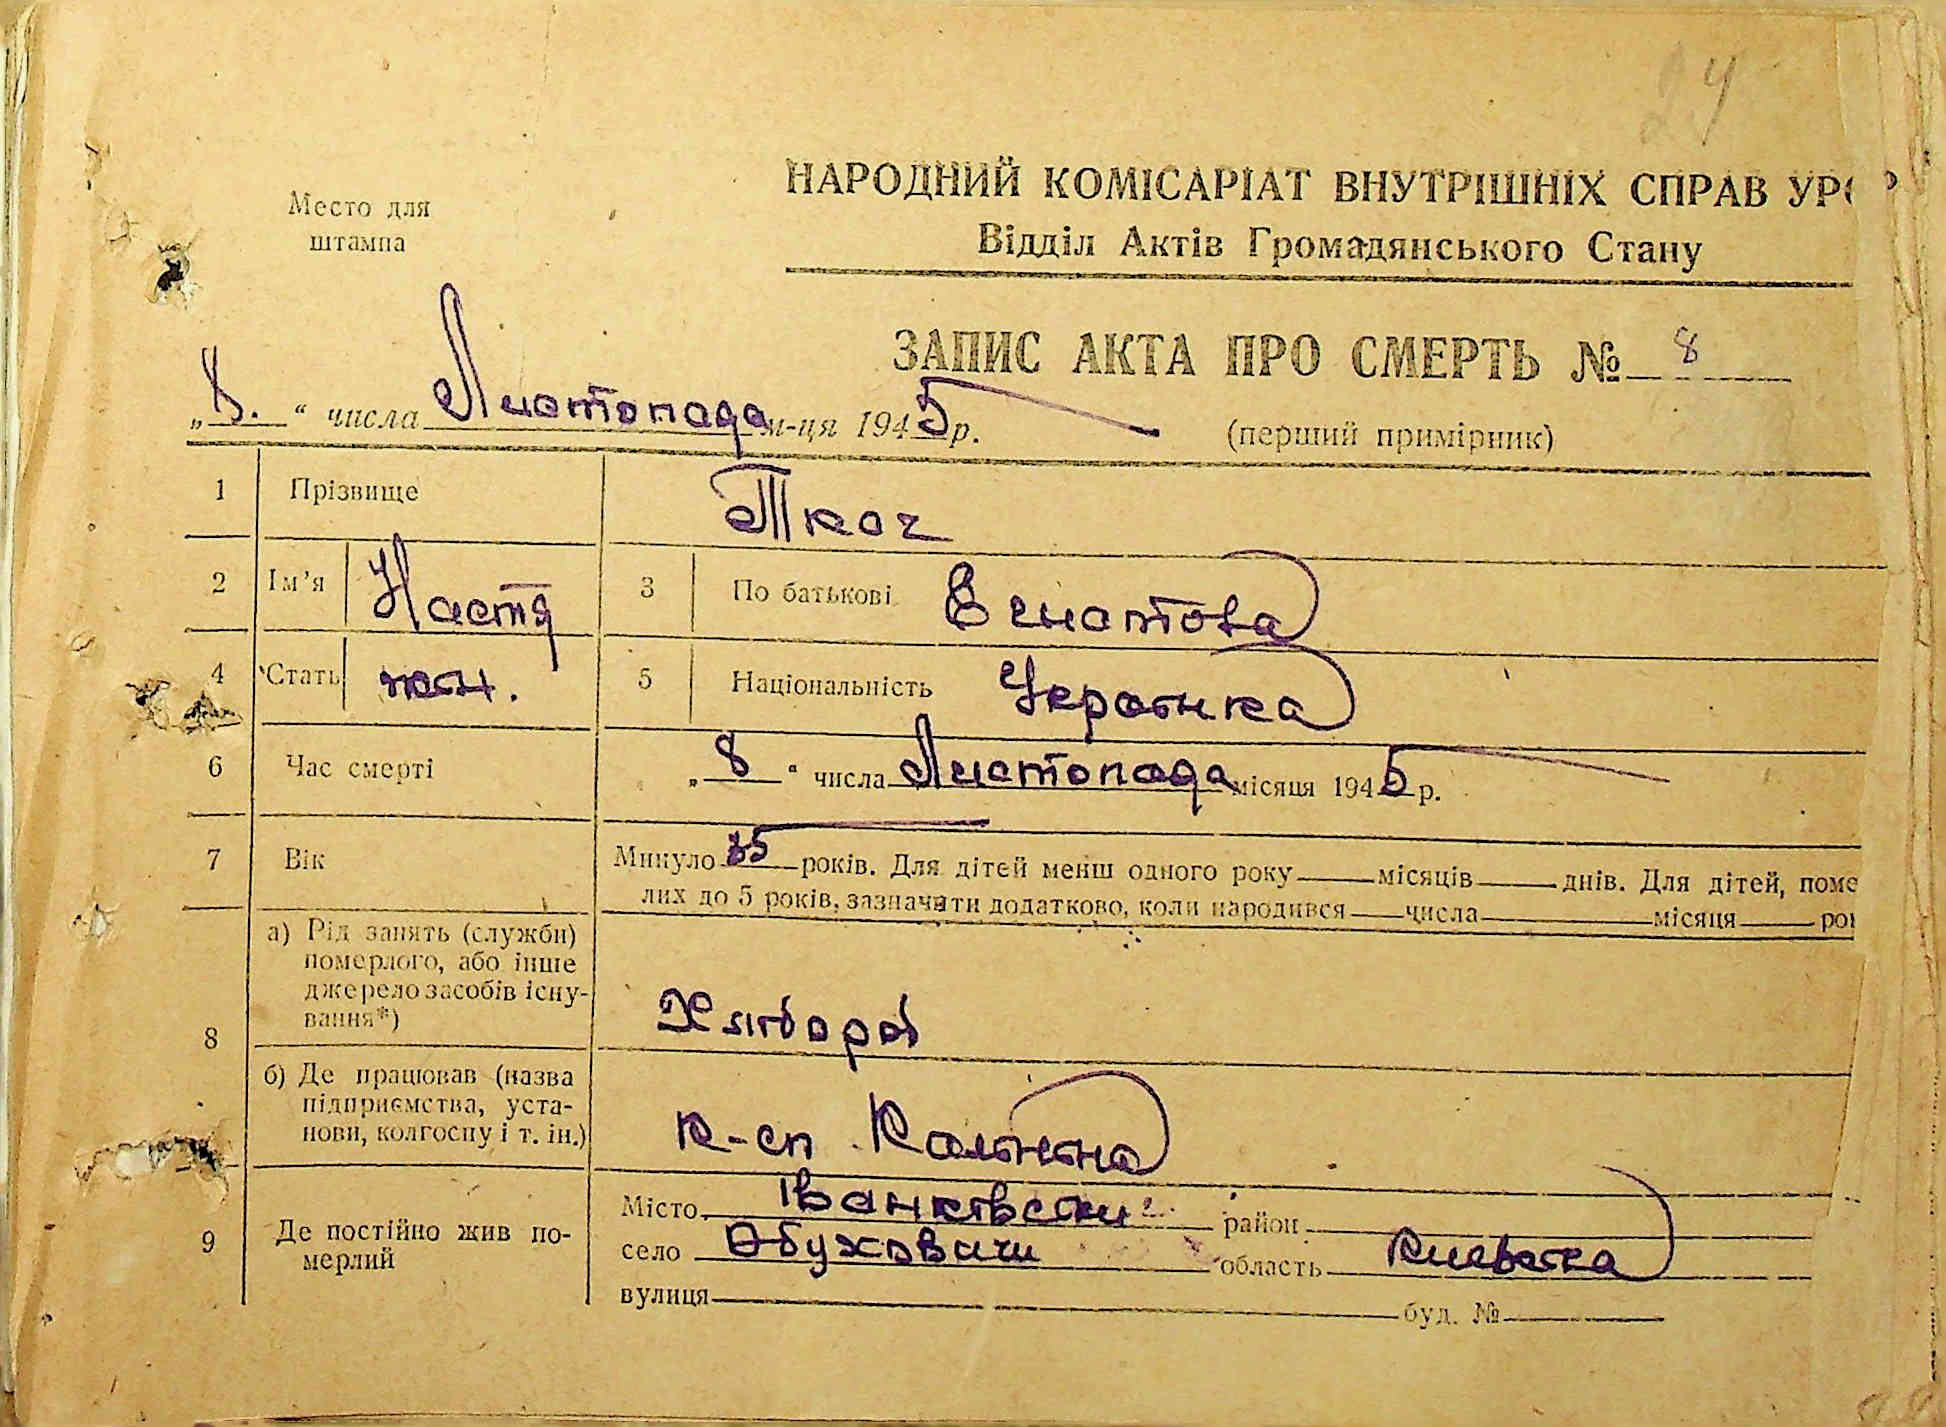 24
Место для
штампа
НАРОДНИЙ КОМІСАРІАТ ВНУТРІШНІХ СПРАВ УРСР
Відділ Актів Громадянського Стану
ЗАПИС АКТА ПРО СМЕРТЬ № 8
„8.“ числа Листопада м-ця 1945 р.
(перший примірник)
1 Прізвище Ткач
2 Ім’я Настя 3 По батькові
4 Стать жен. 5 Національність Украінка
6 Час смерті „8“ числа Листопада місяця 1945 р.
7 Вік Минуло 35 років. Для дітей менш одного року місяців днів. Для дітей, поме
лих до 5 років, зазначити додатково, коли народився числа місяця рок
8 а) Рід занять (служби)
померлого, або інше
джерело засобів існу-
вання*)
Хлібороб
б) Де працював (назва
підприємства, уста-
нови, колгоспу і т. ін.)
к-сп Калініна
9 Де постійно жив по-
мерлий
Місто Іванківський район
село Обуховичи область Киевска
вулиця буд. №